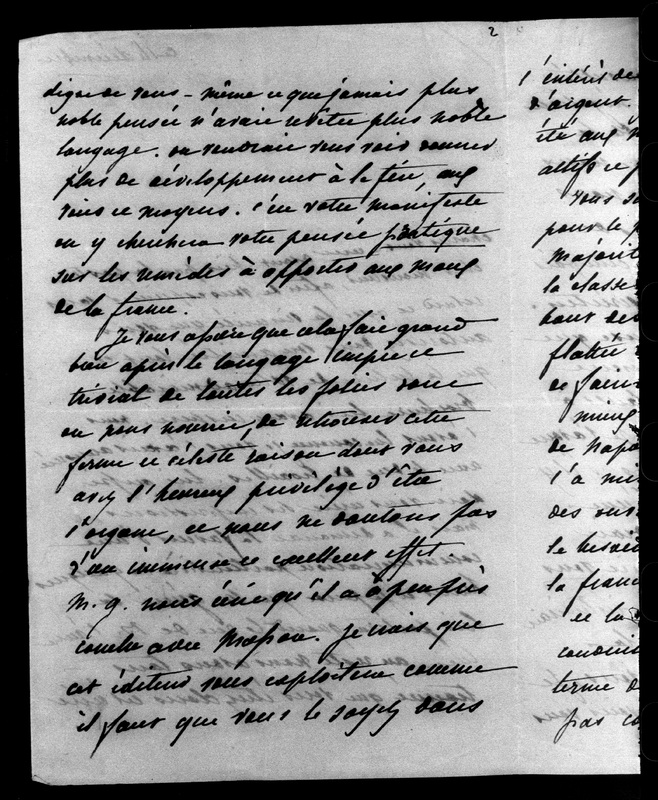 2
digne de vous-même et que jamais plus
noble pensée n'avait revêtu plus noble
langage. on voudrait vous voir donner
plus de développement à la fin, aux
voies et moyens. C'est votre manifeste
on y cherchera votre pensée pratique
sur les remèdes à apporter aux maux
de la france.
Je vous assure que cela fait grand
bien après le langage impie et
trivial de toutes les folies dont
on nous nourrit, de retrouver cette
ferme et céleste raison dont vous
avez l'heureux privilège d'être
l'organe, et nous ne doutons pas
d'un immense et excellent effet.
M. g. nous écrit qu'il a à peu près
conclu avec Masson. Je crois que
cet éditeur vous exploitera comme
il faut que vous le soyez dans
l'intérêt de
d'argent.
été aux
altisse
vous
pour le
majorit
la classe
haut de
flatté
de
ming
de Napo
l'a mi
des
le besoin
la franc
et la
terme d
pas co